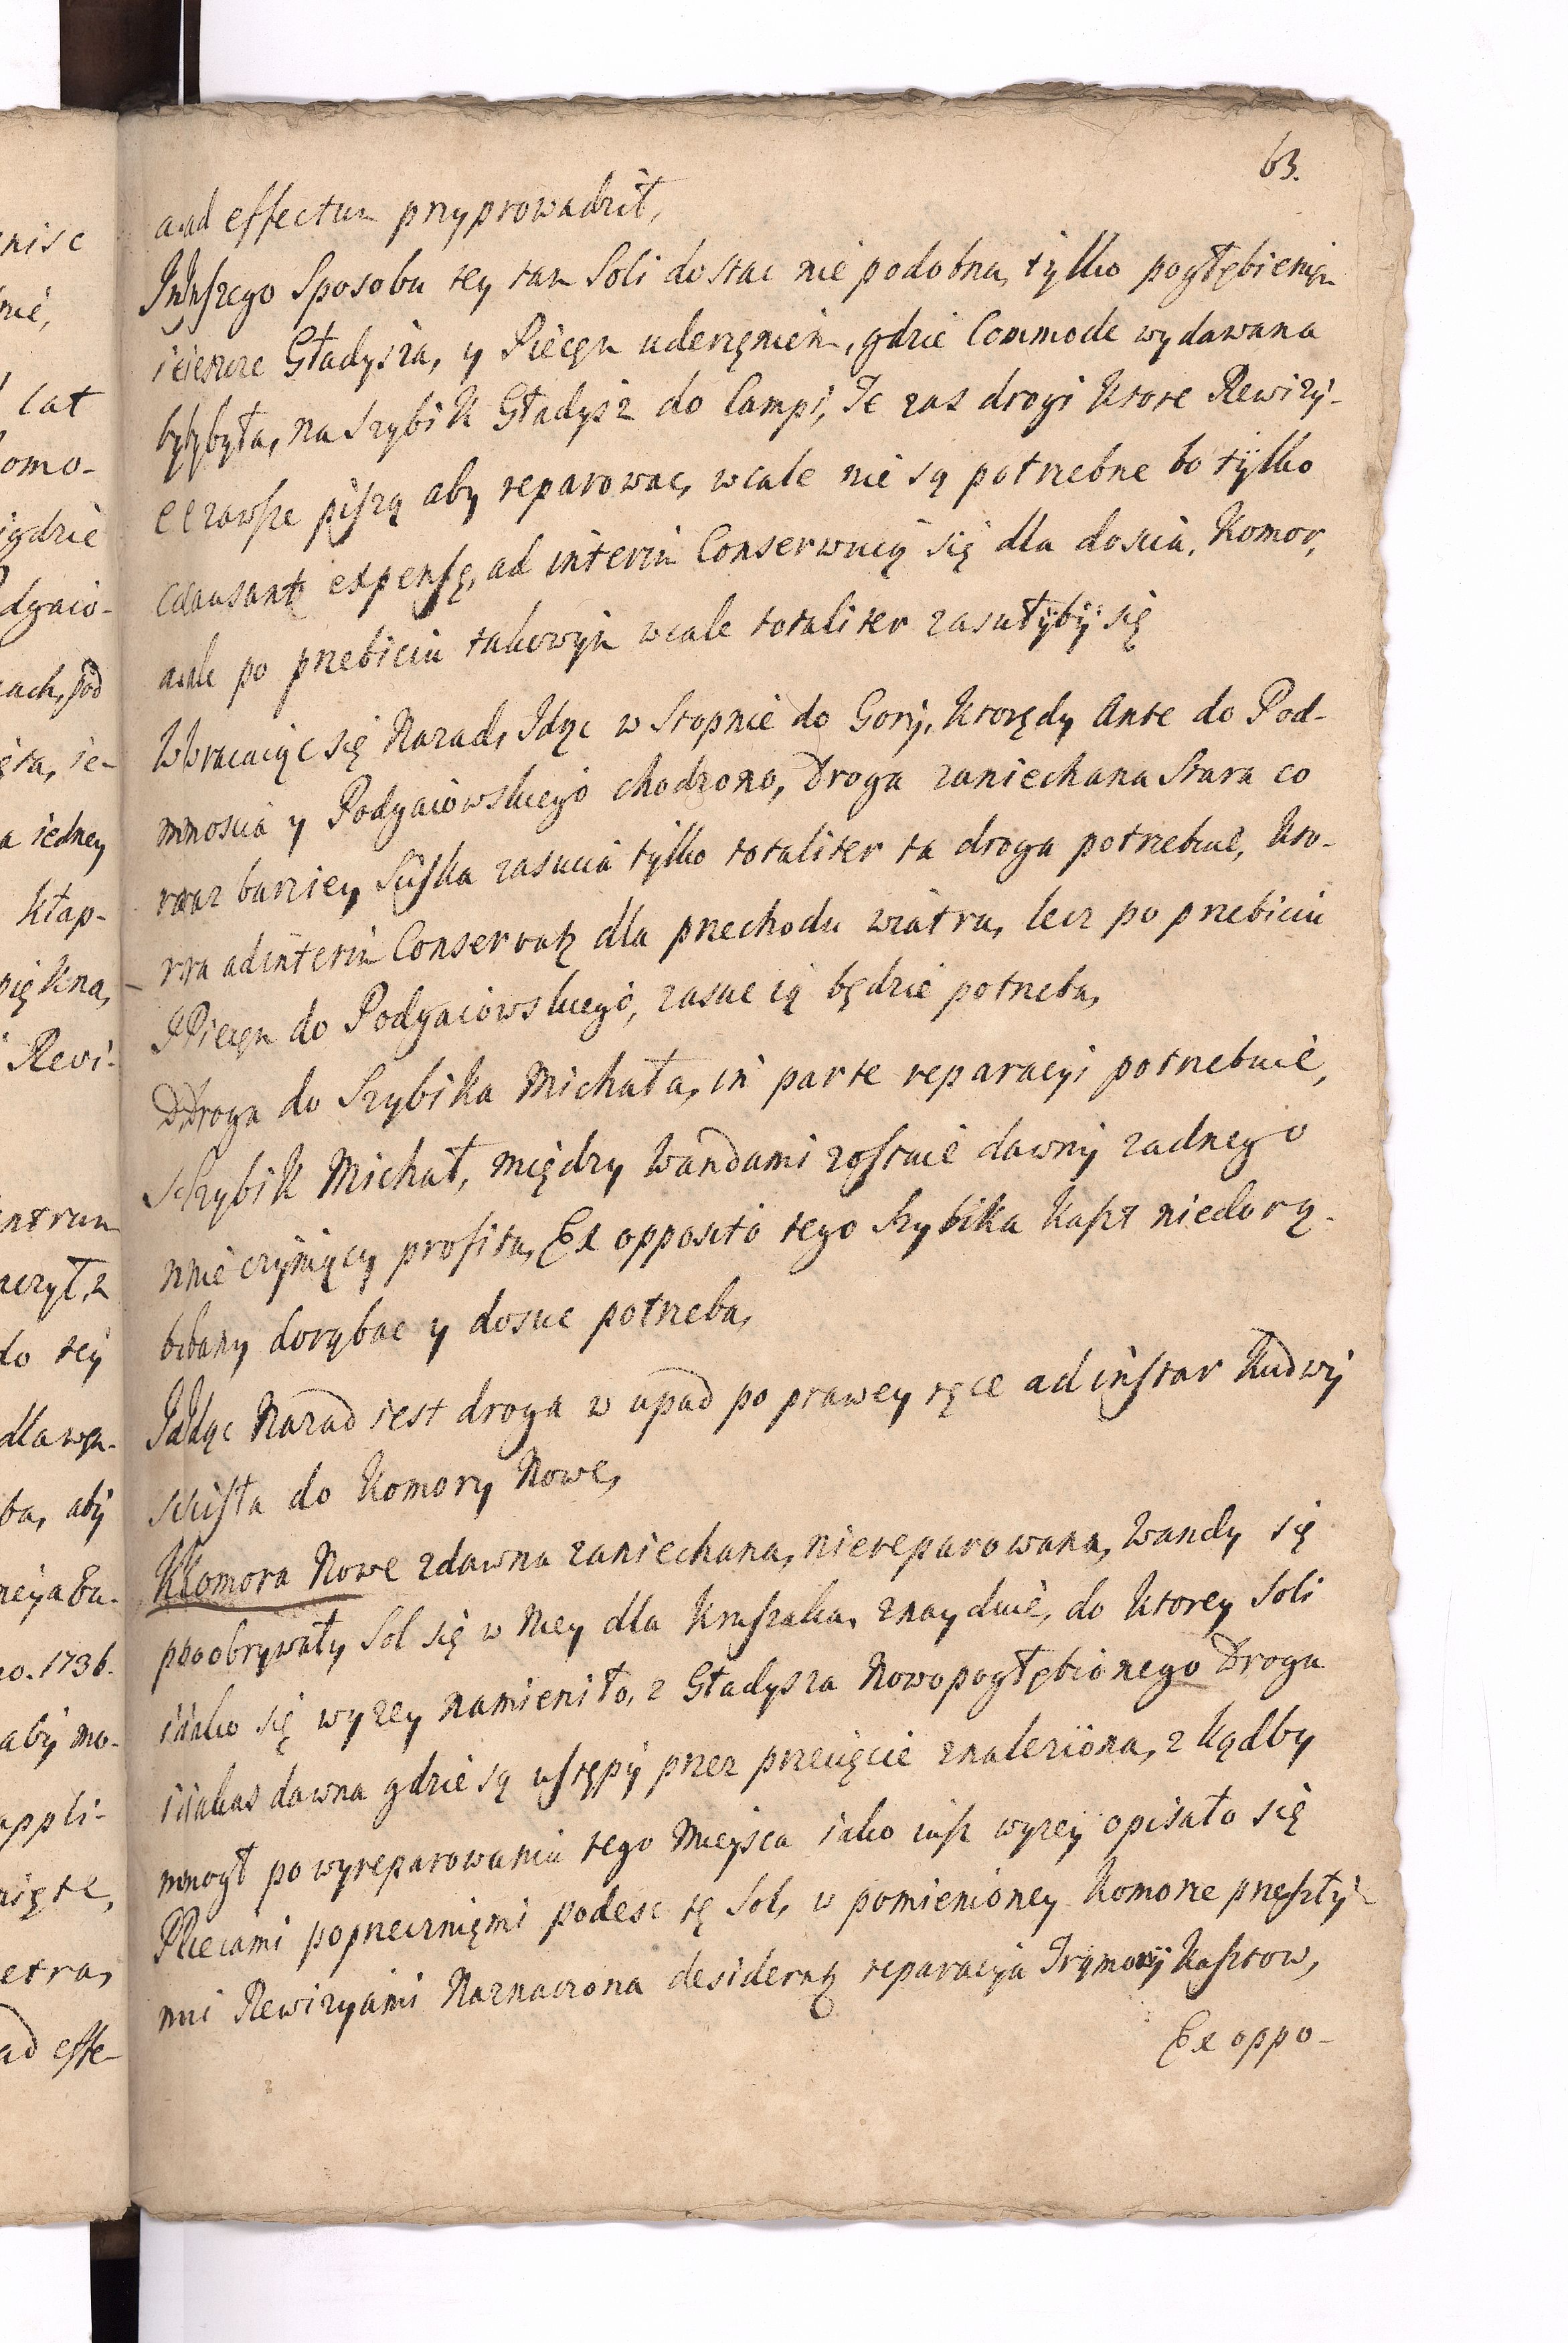 63.
ad effectum przyprowadził,
Inszego Sposobu tey tam Soli dostac nie podobna, tylko pogłębieniem
ieszcze Gładysza, y Piecem uderzeniem, gdzie Commode wydawana
byłaby, na Szybik Gładysz do Campi, Te zas drogi ktore Rewizy-
e zawsze piszą aby reparowac, wcale nie są potrzebne bo tylko
causant expensę, ad interim Conserwuią się dla dosucia, Komor,
ale po przebiciu takowym wcale totaliter zasułyby się
Wracaiąc się Nazad, Idąc w Stopnie do Gory, ktorędy Ante do Pod-
moscia y Podgaiowskiego chodzono, Droga zaniechana Stara co
raz barziey, Siska zasucia tylko totaliter ta droga potrzebuie, kto-
ra ad interim Conservatur dla przechodu wiatru, lecz po przebiciu
Piecem do Podgaiowskiego, zasuc ią będzie potrzeba,
Droga do Szybika Michała, in parte reparacyi potrzebuie,
Szybik Michał, między Wandami zostaie dawny zadnego
nie czyniący profitu, Ex opposito tego Szybika kaszt niedorą-
bany dorąbac y dosuc potrzeba,
Idąc Nazad iest droga w upad po prawey ręce ad instar Rudwy
scisła do Komory Nowe,
Komora Nowe zdawna zaniechana, niereparowana, Wandy się
poobrywały Sol się w Niey dla Kruszaku, znayduie, do ktorey Soli
iako się wyzey namieniło, z Gładysza Nowopogłębionego Droga
iakas dawna gdzie są ustępy przez przecięcie znaleziona, z kądby
mogł po wyreparowaniu tego Mieysca iako iusz wyzey opisało się
Piecami poprzecznięmi podesc tę Sol, w pomienioney Komorze przeszłÿ-
mi Rewizyami Naznaczona desideratur reparacyia Trymow y Kasztow,
Ex oppo-